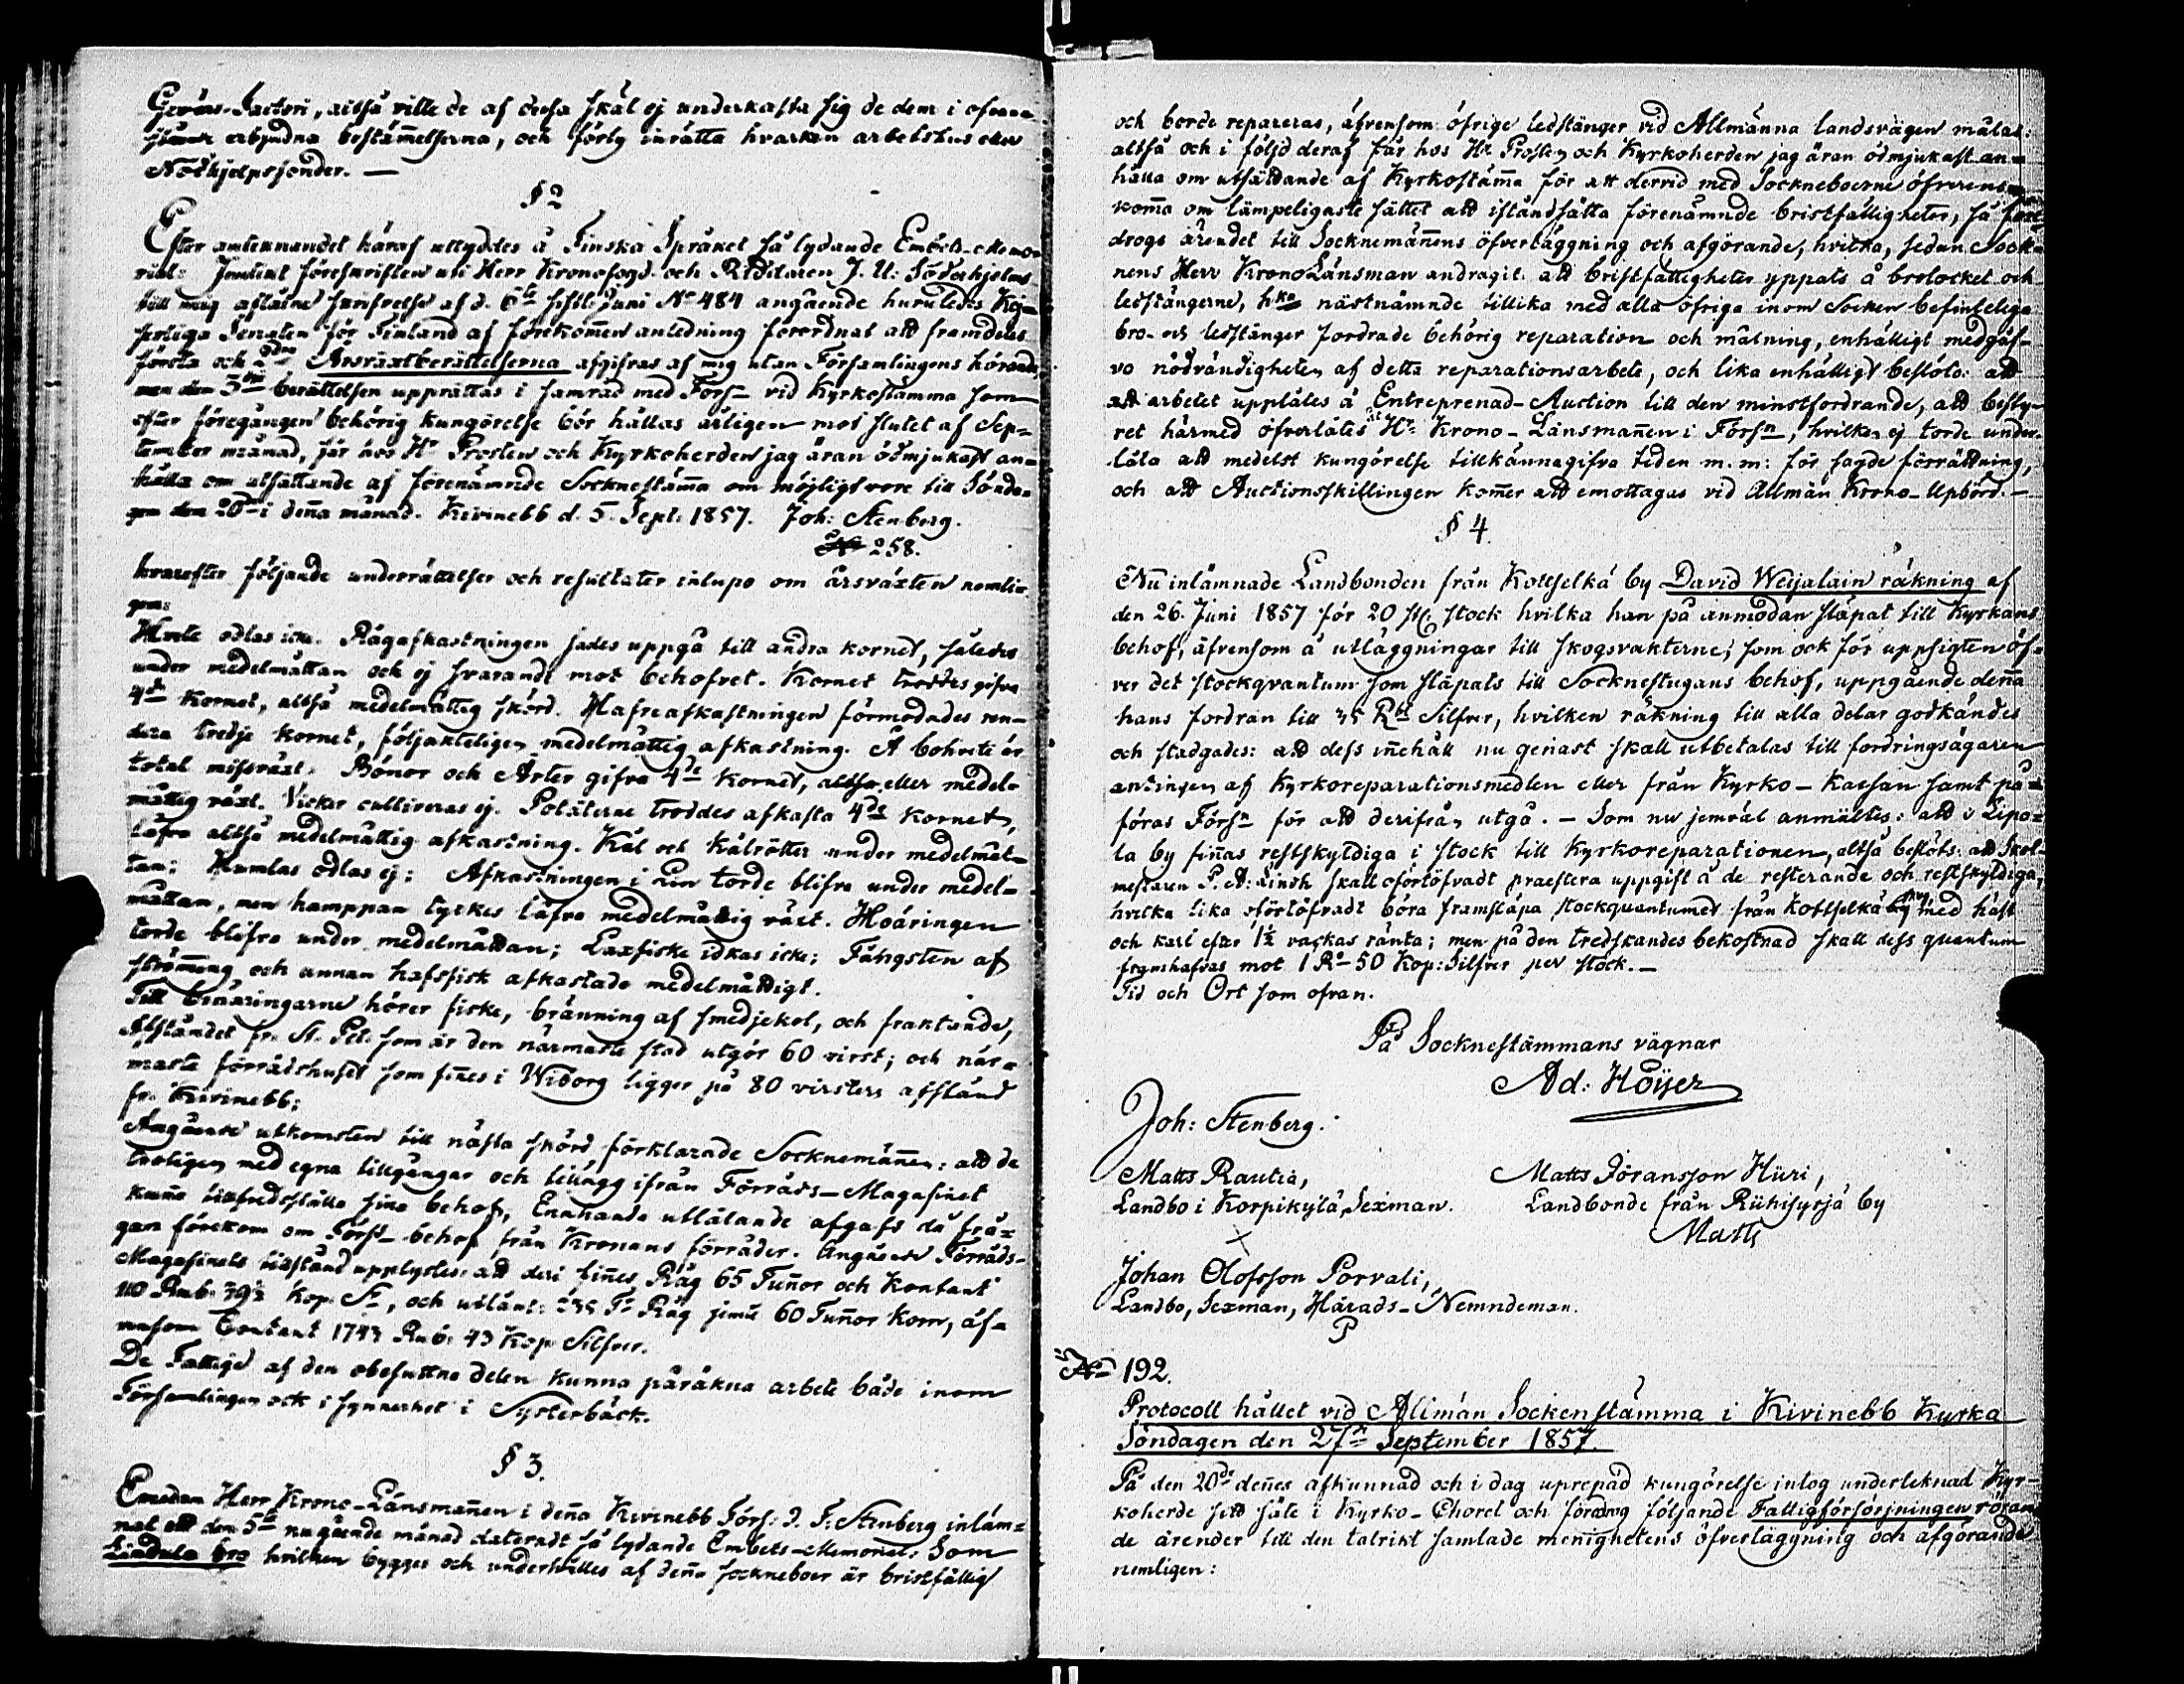 Gevärs-Factori, altså ville de af dessa skäl ej underkasta sig de dem i ofvan
erbjudna bestämmelserna, och förty inrätta hvarken arbetshus eller
Nödhjelpsfonder. —
§ 2
Efter antecknandet häraf uttyddes å Finska Språket så lydande Embets-Memo-
rial: Jemlikt föreskriften uti Herr Kronofogd. och Riddaren J. U. Söderhjelms
till mig aflåtne skrifvelse af d. 6te sistl. Juni No 484 angående huruledes Kej-
serliga Senaten för Finland af förekommen anledning förordnat att framdeles
första och 2dra Årsväxtberättelserna afgifvas af mig utan Församlingens hörande
men den 3dje berättelsen upprättas i samråd med Förs. vid Kyrkostämma som
efter föregången behörig kungörelse bör hållas årligen mot slutet af Sep=
tember månad, får hos Hr Prosten och Kyrkoherden jag äran ödmjukast an=
hålla om utsättande af förenämnde Socknestäma om möjligt vore till Sönda=
gen den 20de i denna månad. Kivinebb d. 5. Sept: 1857. Joh: Stenberg.
No 258.
hvarefter följande underrättelser och resultater inlupo om årsväxten nemli-
gen:
Hvete odlas icke. Rågafkastningen sades uppgå till andra kornet, således
under medelmåttan och ej svarande mot behofvet. Kornet troddes gifva
4de Kornet, altså medelmåttig skörd. Hafreafkastningen förmodades ren-
dera tredje kornet, följakteligen medelmåttig afkastning. Å bohvete är
total missväxt. Bönor och Ärter gifva 4de Kornet, altså eller medel-
måttig växt. Vicker cultiveras ej. Potäterne troddes afkasta 4de Kornet,
låfva altså medelmåttig afkastning. Kål och Kålrötter under medelmåt-
tan; Humlas odlas ej; Afkastningen i Lin torde blifva under medel-
måttan, men hamppan tyckes låfva medelmåttig växt. Höäringen
torde blifva under medelmåttan; Laxfiske idkas icke; Fångsten af
strömming och annan hafsfisk afkastade medelmåttigt.
Till binäringarne hörer fiske, bränning af smedjekol, och fraktande,
Afståndet fr. St. Pet. som är den närmaste stad utgör 60 virst; och när-
maste förrådshuset som finnes i Wiborg ligger på 80 virsters afstånd
fr. Kivinebb;
Angående utkomsten till nästa skörd, förklarade Socknemännen: att de
troligen med egna tillgångar och tillägg ifrån Förråds-Magasinet
kunna tillfredsställa sina behof, Enahanda utlåtande afgafs då frå=
gan förekom om Förs. behof från Kronans förråder. Angående Förråds-
Magasinets tillstånd upplystes: att deri finnes Råg 65 Tunnor och Kontant
110 Rub. 39½ Kop. Sr, och utlånt: 235 Tr Råg jemte 60 Tunnor Korn, äf-
vensom Contant 1743 Rub: 43 Kop Silfver.
De Fattige af den obesuttna delen kunna påräkna arbete både inom
Församlingen och i synnerhet i Systerbäck.
§ 3.
Emedan Herr Krono-Länsmannen i denna Kivinebb Förs: J. F. Stenberg inläm=
nat ett den 5te nu gående månad dateradt så lydande Embets-Memorial: Som
Lindula bro hvilken bygges och underhålles af denna sockneboer är bristfällig
och borde repareras, äfvensom öfrige ledstänger vid Allmänna landsvägen målas:
altså och i följd deraf får hos Hr Prosten och Kyrkoherden jag äran ödmjukast an=
hålla om utsättande af Kyrkostämma för att dervid med Sockneboerne öfverens
komma om lämpeligaste sättet att iståndsätta förenämnde bristfälligheter, så före
drogs ärendet till Socknemännens öfverläggning och afgörande, hvilka, sedan Sock-
nens Herr KronoLänsman andragit att bristfälligheter yppats å brolocket och
ledstängerne, hka nästnämnde tillika med alla öfriga inom Socken befintelige
bro- och ledstänger fordrade behörig reparation och målning, enhälligt medgåf-
vo nödvändigheten af detta reparationsarbete, och lika enhälligt beslöto: att
att arbetet upplåtes å Entreprenad-Auction till den minstfordrande, att besty-
ret härmed öfverlåtes åt Hr Krono-Länsmannen i Förs:n, hvilken ej torde under-
låta att medelst kungörelse tillkännagifva tiden m.m: för sagde förrättning,
och att Auctionsskillingen kommer att emottagas vid Allmän Krono-Upbörd. —
§ 4.
Nu inlämnade Landbonden från Kottselkä by David Weijalain räkning af
den 26. Juni 1857 för 20 st. stock hvilka han på anmodan släpat till Kyrkans
behof, äfvensom å utläggningar till skogsvakterne, som ock för uppsigten öf-
ver det stockqvantum som släpats till Socknestugans behof, uppgående denna
hans fordran till 35 Rbl Silfver, hvilken räkning till alla delar godkändes
och stadgades: att dess innehåll nu genast skall utbetalas till fordringsägaren
antingen af Kyrkoreparationsmedlen eller från Kyrko-Kassan samt på=
föras Förs:n för att derifrån utgå. — Som nu jemväl anmältes: att i Lipo=
la by finnas restskyldiga i stock till Kyrkoreparationen, altså beslöts: att Skol-
mestaren P. A: Lindh skall ofortöfvadt praestera uppgift å de resterande och restskyldiga,
hvilka lika oförtöfvadt böra framsläpa stockquantumet från Kottselkä by med häst
och karl efter 1½ vackas ränta; men på den tredskandes bekostnad skall dess quantum
framskafvas mot 1 Ro 50 Kop: Silfver per stock. —
Tid och Ort som ofvan.
På Socknestämmans vägnar
Ad: Höijer
Joh: Stenberg.
Matts Rautia,
Landbo i Korpikylä, Sexman.
Matts Göransson Hüri,
Landbonde från Riihisyrjä by
Matts
X
Johan Olofsson Porvali,
Landbo, Sexman, Härads-Nemndeman.
P
No 192.
Protocoll hållet vid Allmän Sockenstämma i Kivinebb Kyrka
Söndagen den 27de September 1857.
På den 20de dennes afkunnad och i dag uprepad kungörelse intog underteknad Kyr-
koherde sitt säte i Kyrko-Choret och föredrog följande Fattigförsörjningen röran
de ärender till den talrikt samlade menighetens öfverläggning och afgörande
nemligen: